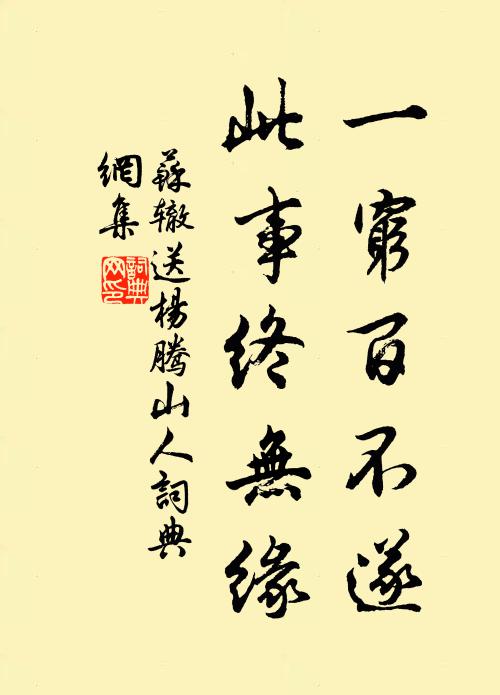 一窮百不遂
此事終無緣
蘇辙送楊騰山人詞典
網集
詞典
网印